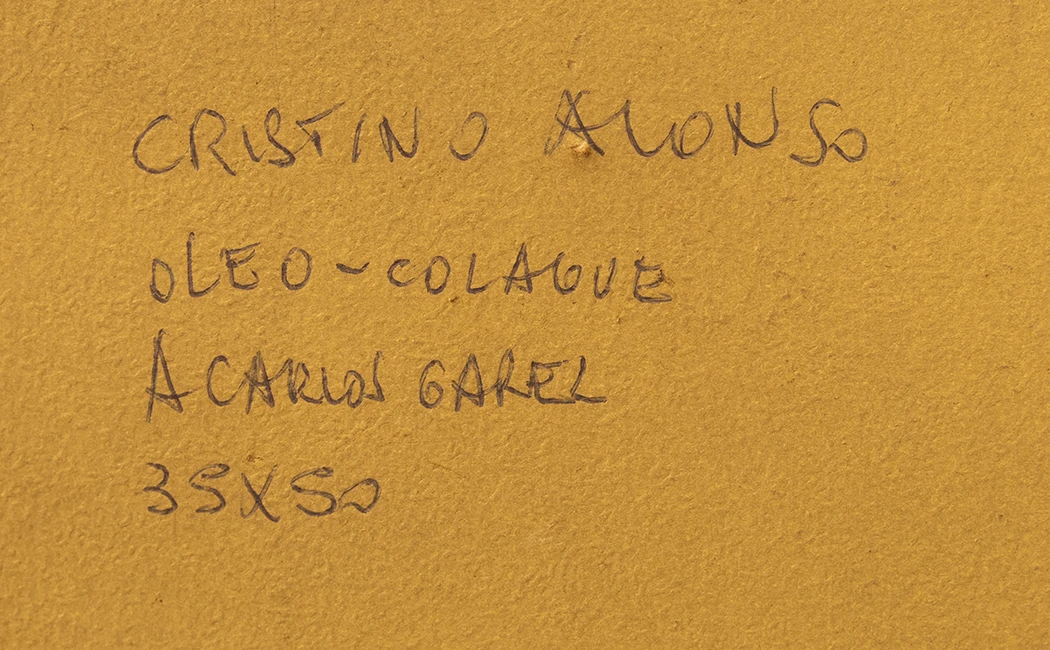 CRISTINO ALONSO
OLEO-COLAGUE
A CARLOS GAREL
35X50